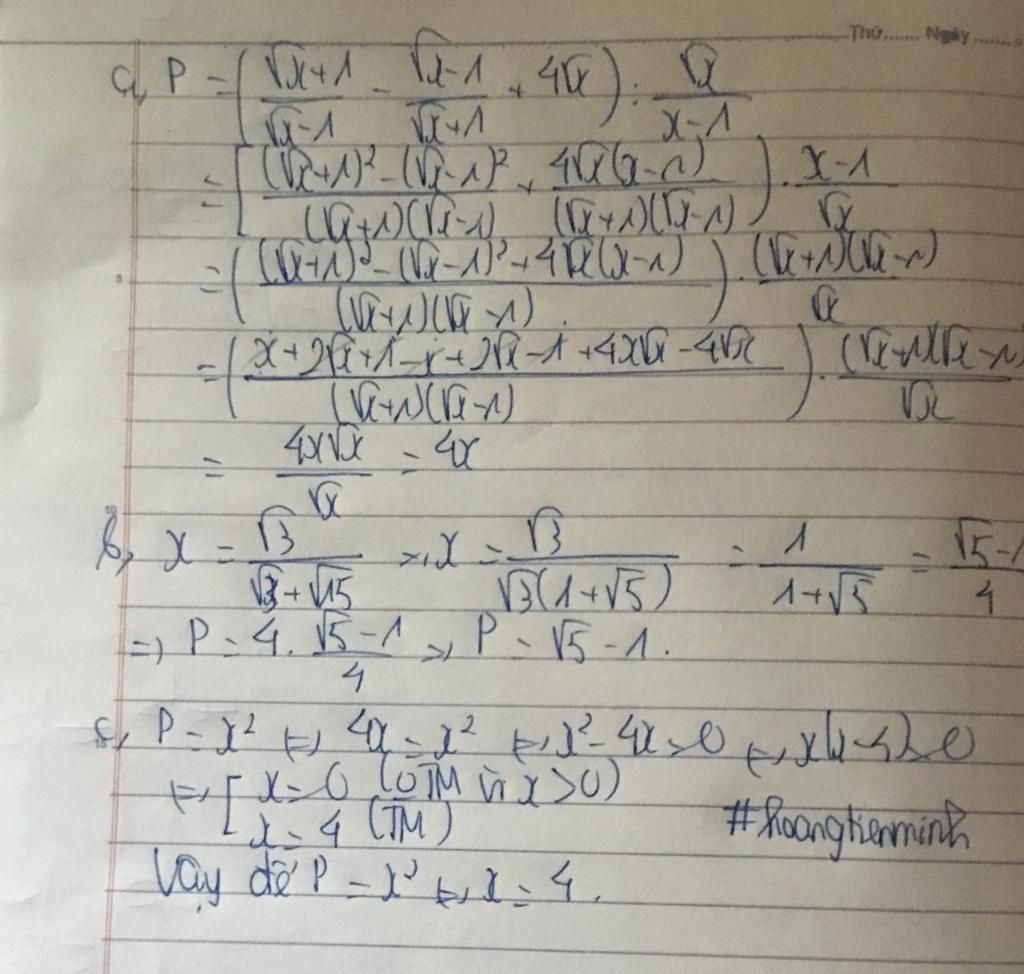 Thứ....... Ngày.......
a, P = (\frac{√x+1}{√x-1} - \frac{√x-1}{√x+1} + 4√x) : \frac{√x}{x-1}
= [\frac{(√x+1)² - (√x-1)²}{(√x+1)(√x-1)} + \frac{4√x(x-1)}{(√x+1)(√x-1)}) . \frac{x-1}{√x}
= (\frac{(√x+1)² - (√x-1)² + 4√x(x-1)}{(√x+1)(√x-1)}) . \frac{(√x+1)(√x-1)}{√x}
= (\frac{x+2√x+1-x+2√x-1+4x√x-4√x}{(√x+1)(√x-1)}) . \frac{(√x+1)(√x-1)}{√x}
= \frac{4x√x}{√x} = 4x
b, x = \frac{√3}{√3+√15} => x = \frac{√3}{√3(1+√5)} = \frac{1}{1+√5} = \frac{√5-1}{4}
=> P = 4. \frac{√5-1}{4} => P = √5-1.
c, P = x² <=> 4x = x² <=> x² - 4x = 0 <=> x(x-4) = 0
<=> [ x = 0 (0TM vì x > 0)
x = 4 (TM)
#hoangtienminh
Vậy để P = x² <=> x = 4.